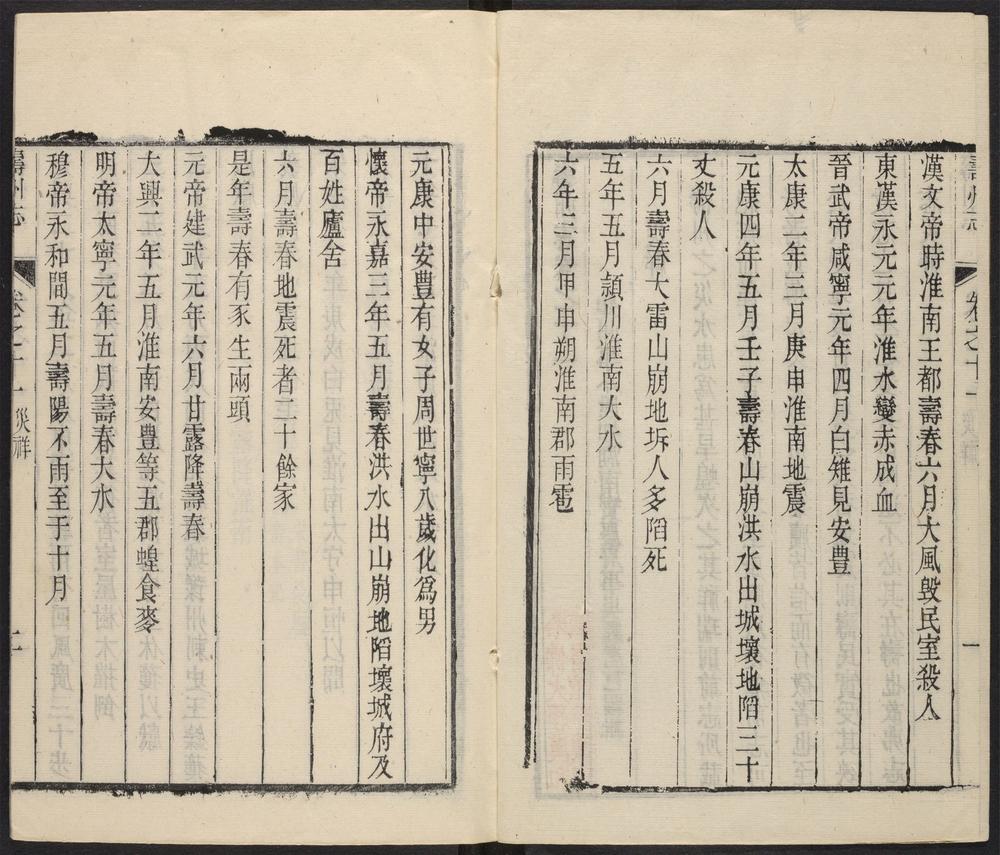 壽州志 卷之十一 災祥 一
漢文帝時淮南王都壽春六月大風毀民室殺人
東漢永元元年淮水變赤成血
晉武帝咸寧元年四月白雉見安豐
太康二年三月庚申淮南地震
元康四年五月壬子壽春山崩洪水出城壞地陷三十
丈殺人
六月壽春大雷山崩地坼人多陷死
五年五月潁川淮南大水
六年三月甲申朔淮南郡雨雹
元康中安豐有女子周世寧八歲化爲男
懷帝永嘉三年五月壽春洪水出山崩地陷壞城府及
百姓廬舍
六月壽春地震死者二十餘家
是年壽春有豕生兩頭
元帝建武元年六月甘露降壽春
大興二年五月淮南安豊等五郡蝗食麥
明帝太寧元年五月壽春大水
穆帝永和間五月壽陽不雨至于十月
壽州志 卷之十一 災祥 二